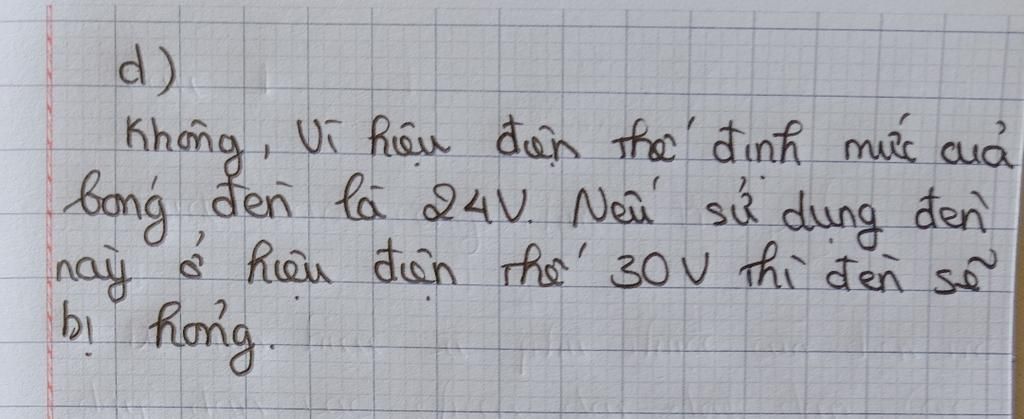 d)
Không, Vì hiệu điện thế định mức của
bóng đèn là 24V. Nếu sử dụng đèn
này ở hiệu điện thế 30V thì đèn sẽ
bị hỏng.